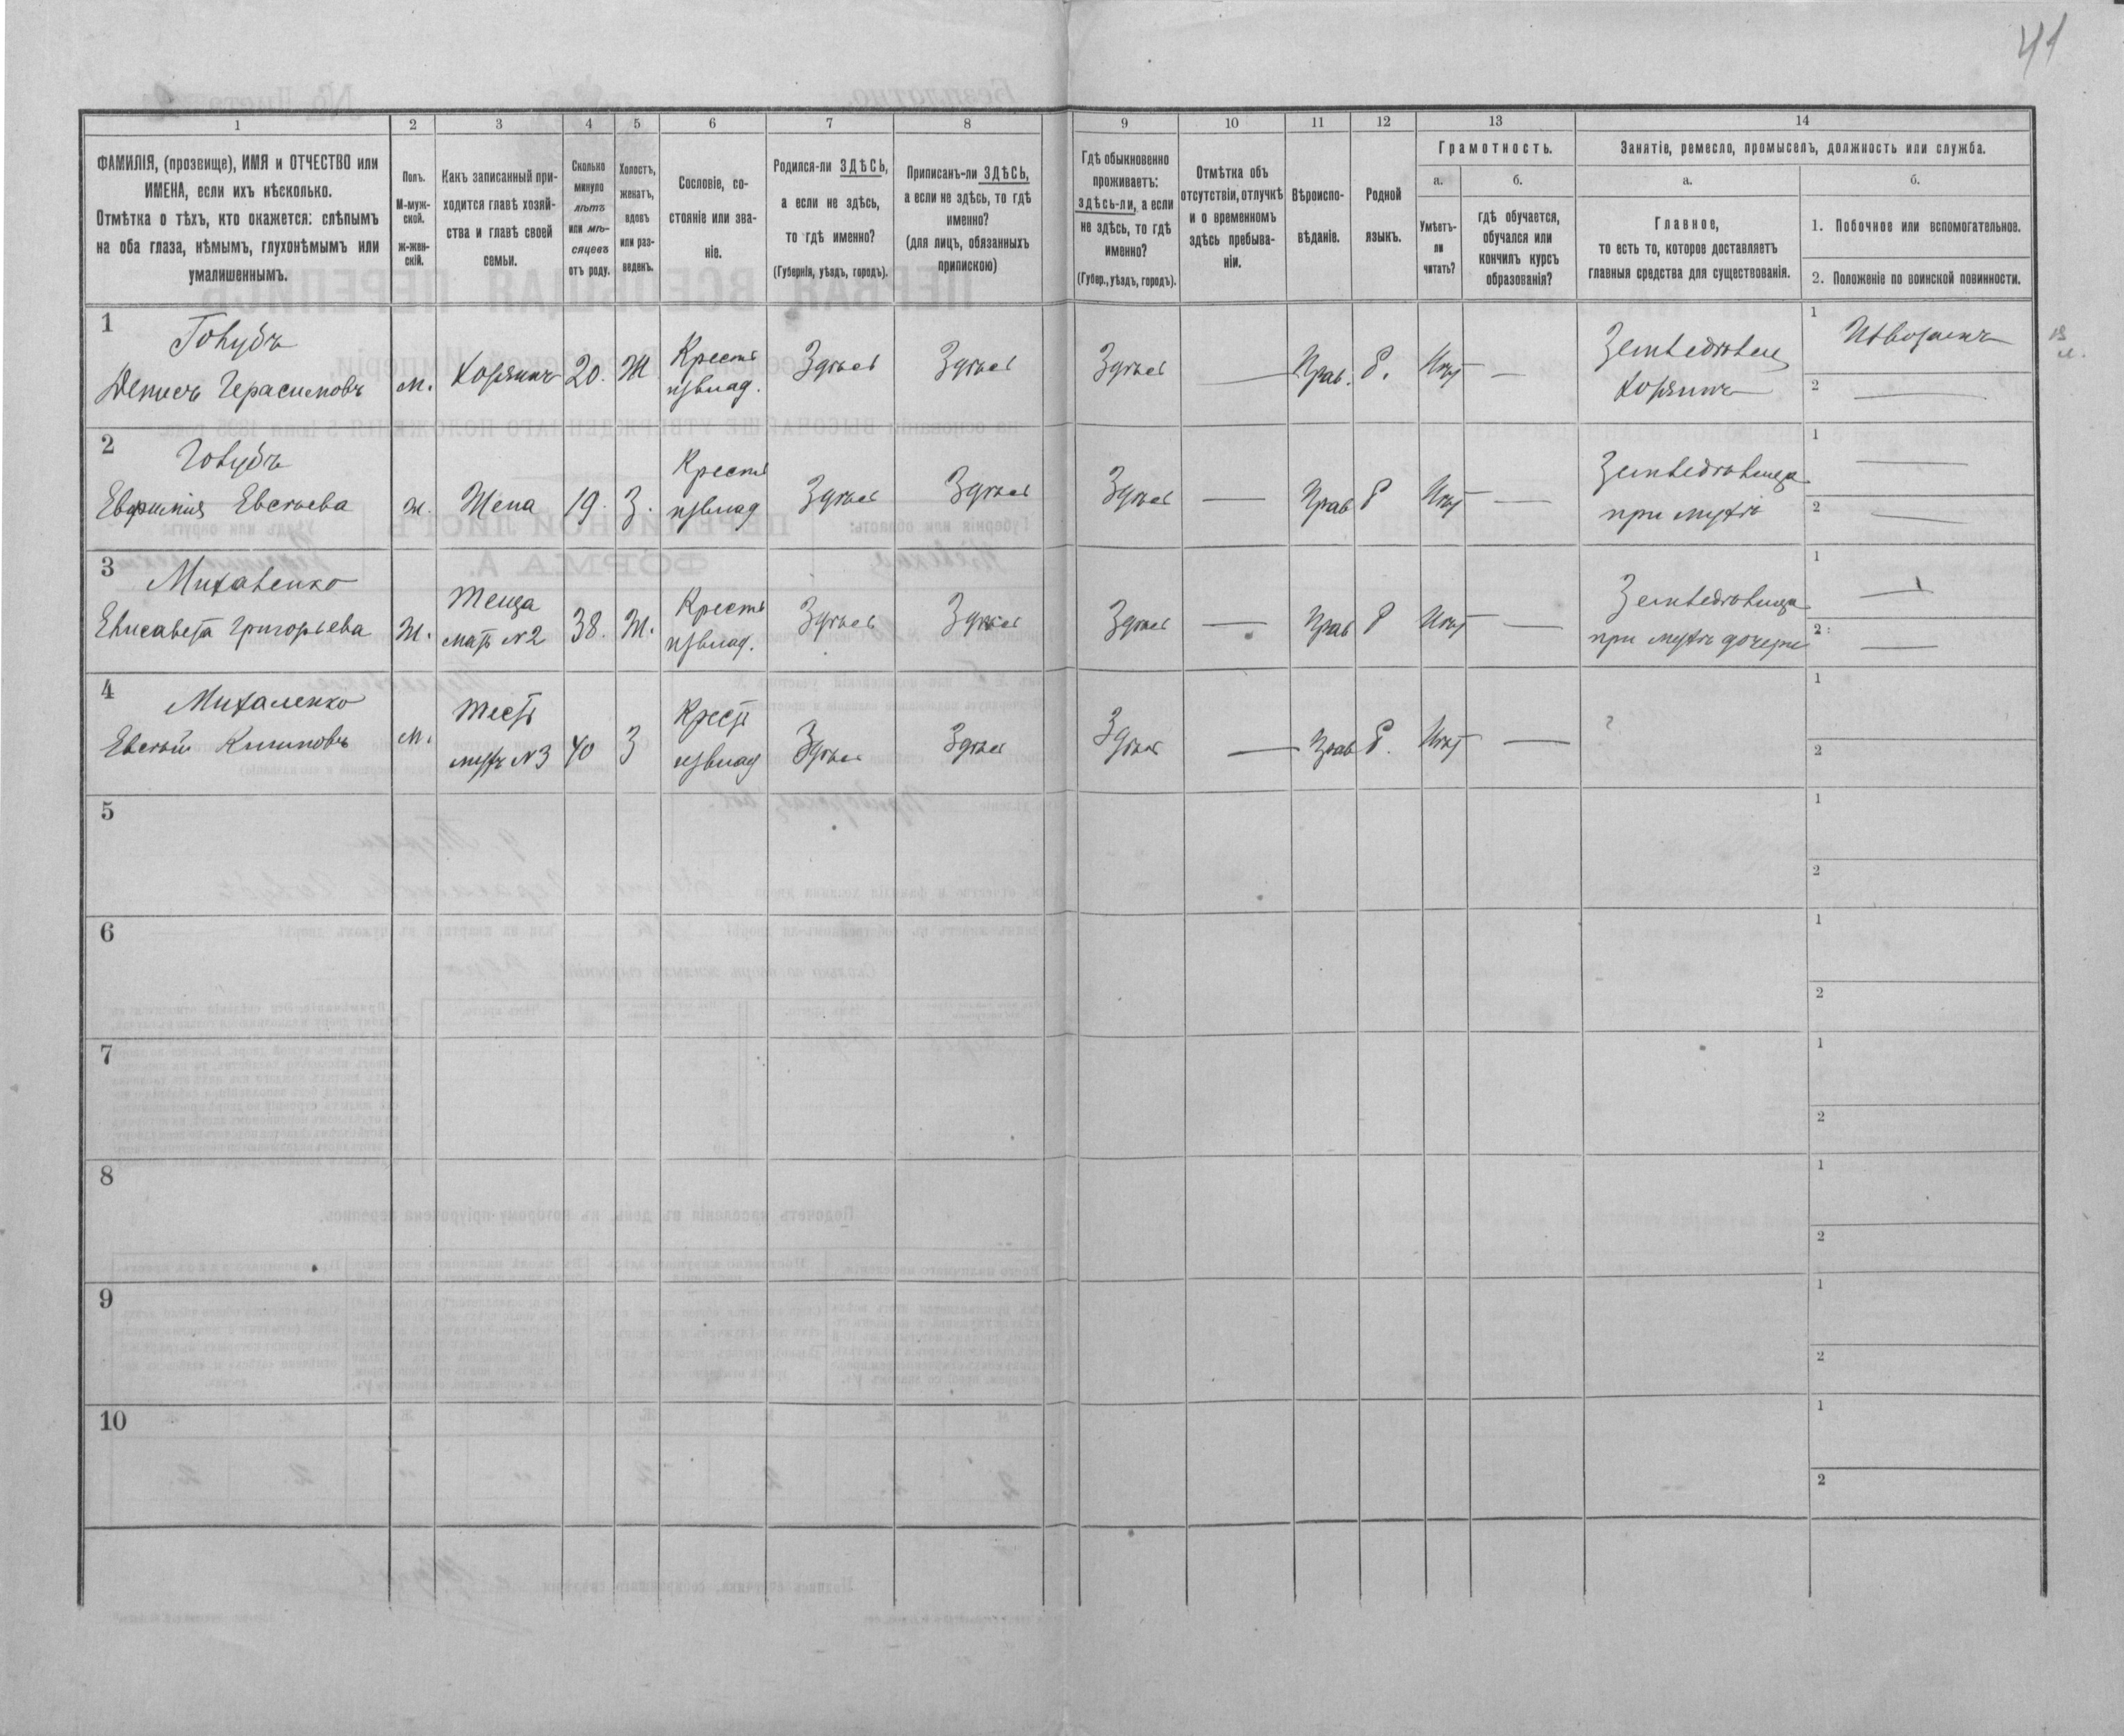 41
1 2 3 4 5 6 7 8 9 10 11 12 13 14
ФАМИЛІЯ, (прозвище), ИМЯ и ОТЧЕСТВО или
ИМЕНА, если ихъ нѣсколько.
Отмѣтка о тѣхъ, кто окажется: слѣпымъ
на оба глаза, нѣмымъ, глухонѣмымъ или
умалишеннымъ.
Полъ.
М-муж-
ской.
ж-жен-
скій.
Какъ записанный при-
ходится главѣ хозяй-
ства и главѣ своей
семьи.
Сколько
минуло
лѣтъ
или мѣ-
сяцевъ
отъ роду.
Холостъ,
женатъ,
вдовъ
или раз-
веденъ.
Сословіе, со-
стояніе или зва-
ніе.
Родился-ли ЗДѢСЬ,
а если не здѣсь,
то гдѣ именно?
(Губернія, уѣздъ, городъ).
Приписанъ-ли ЗДѢСЬ,
а если не здѣсь, то гдѣ
именно?
(для лицъ, обязанныхъ
припискою)
Гдѣ обыкновенно
проживаетъ:
здѣсь-ли, а если
не здѣсь, то гдѣ
именно?
(Губер., уѣздъ, городъ).
Отмѣтка объ
отсутствіи, отлучкѣ
и о временномъ
здѣсь пребыва-
ніи.
Вѣроиспо-
вѣданіе.
Родной
языкъ.
Грамотность.
а.
Умѣетъ-
ли
читать?
б.
гдѣ обучается,
обучался или
кончилъ курсъ
образованія?
Занятіе, ремесло, промыселъ, должность или служба.
а.
Главное,
то есть то, которое доставляетъ
главныя средства для существованія.
б.
1. Побочное или вспомогательное.
2. Положеніе по воинской повинности.
1
Голубъ
Денисъ Герасимовъ
м. Хозяинъ 20. Ж
Крестя
извлад.
Здѣсь Здѣсь Здѣсь — Прав. Р. Нѣт —
Земледѣлец
Хозяинъ
1
2 —
2
Голубъ
Евфимія Евсѣева
ж. Жена 19. З.
Крестя
извлад
Здѣсь Здѣсь Здѣсь — Прав Р Нѣт —
Земледѣлица
при мужѣ
1 —
2 —
3
Михаленко
Елисавета Григорьева
Ж.
Теща
мать №2
38. Ж.
Крестя
извлад.
Здѣсь Здѣсь Здѣсь — Прав Р Нѣт —
Земледѣлица
при мужѣ дочери
1 —
2 —
4
Михаленко
Евсѣй Климовъ
м.
Тесть
мужъ №3
40 З
Крест
извлад
Здѣсь Здѣсь Здѣсь — Прав Р. Нѣт —
?
1
2
5
1
2
6
1
2
7
1
2
8
1
2
9
1
2
10
1
2